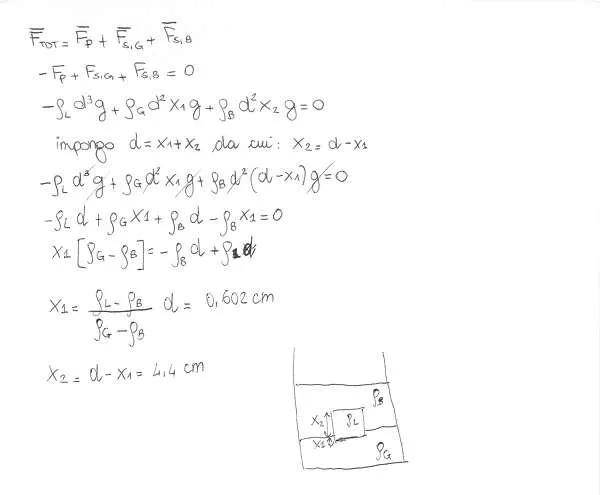 F̅TOT = F̅P + F̅S,G + F̅S,B
-FP + FS,G + FS,B = 0
-ρL d³g + ρG d² x1 g + ρB d² x2 g = 0
impongo d = x1 + x2 da cui: x2 = d - x1
-ρL d³ g + ρG d² x1 g + ρB d² (d - x1) g = 0
-ρL d + ρG x1 + ρB d - ρB x1 = 0
x1 [ρG - ρB] = -ρB d + ρL d
x1 = (ρL - ρB)/(ρG - ρB) d = 0,602 cm
x2 = d - x1 = 4,4 cm
ρB
x2
ρL
x1
ρG